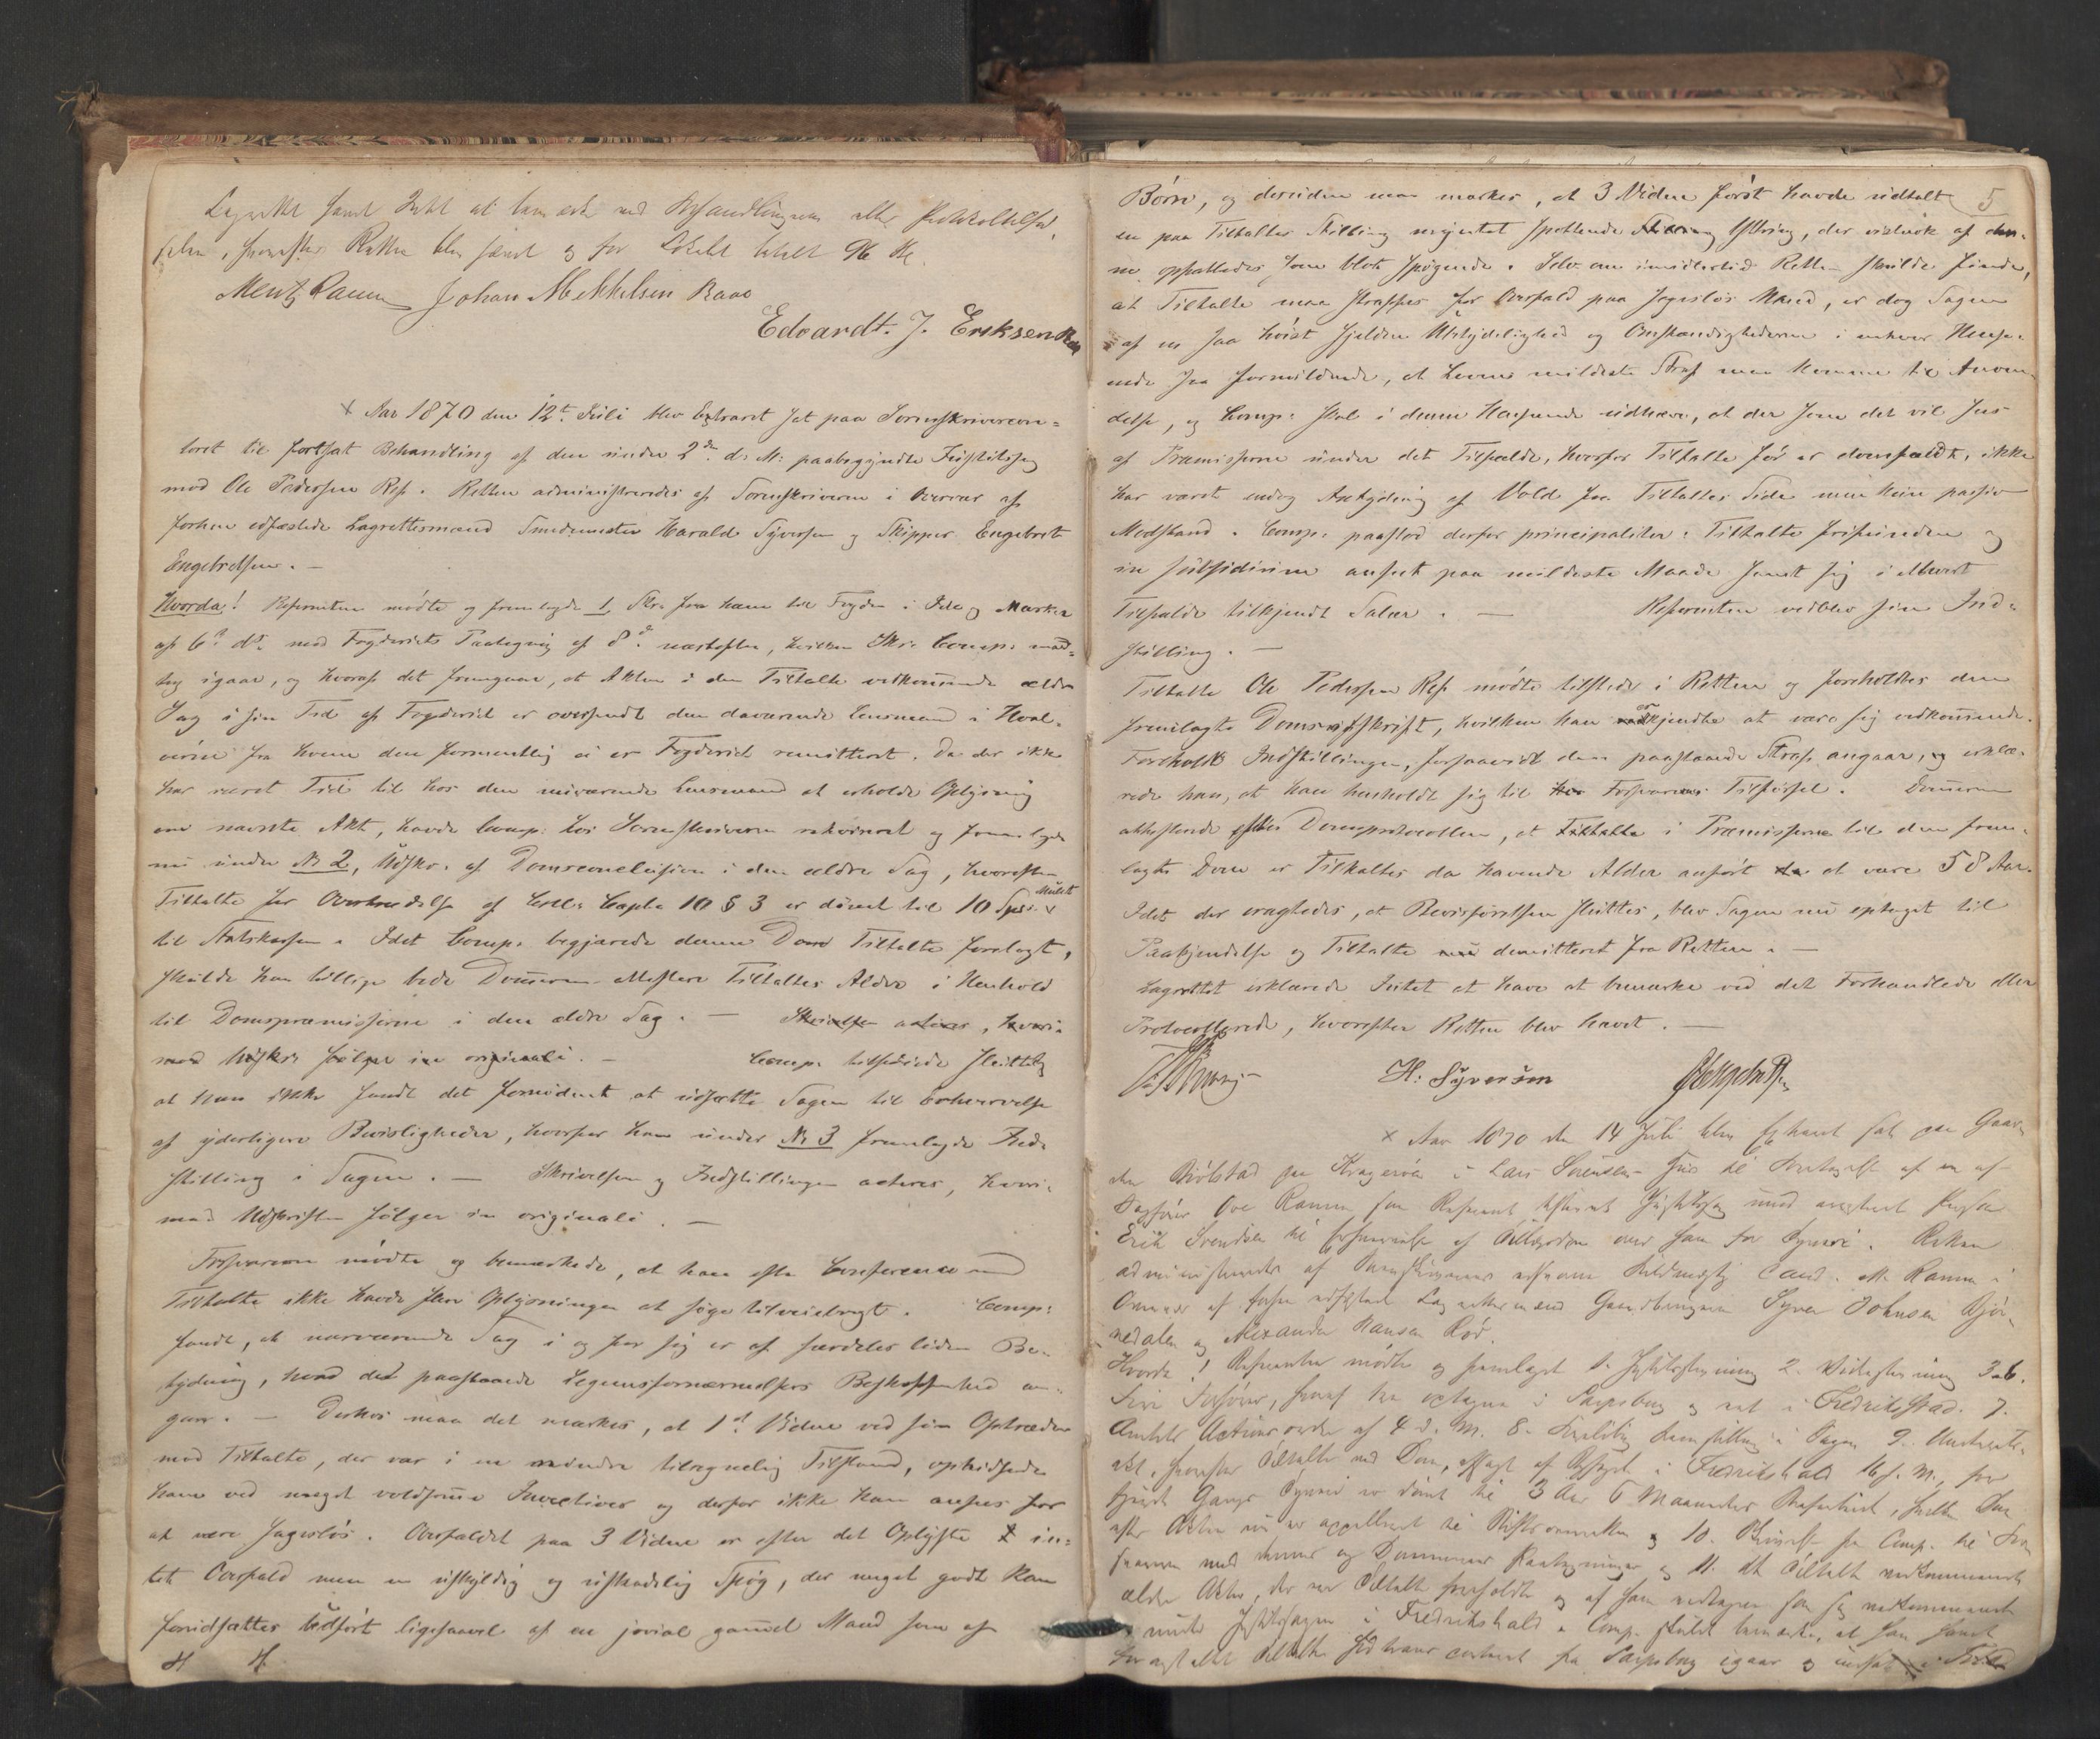 Lagrettet fandt Intet at bemærke ved Behandlingen eller Protokoltilfø-
relsen, hvorefter Retten blev hævet og for Lokalet betalt 96 sk.
Mentz Ramm Johan Mikkelsen Baao
Edvardt. J. Eriksen
x Aar 1870 den 12te Juli blev Extraret sat paa Sorenskrivercon-
toret til fortsat Behandling af den under 2den d. M. paabegyndte Justitssag
mod Ole Pedersen Rif. Retten administreredes af Sorenskriveren i Overvær af
forhen edfæstede Lagrettesmænd Smedmester Harald Syversen og Skipper Engebret
Engebretsen. —
Hvorda! Referenten mødte og fremlagde 1, Skr. fra ham til Fogden i Ide og Marker
af 6te ds. med Fogderiets Paategning af 8de næstefter, hvilken Skr. Comp. mod-
tog igaar, og hvoraf det fremgaar, at Akten i den Tiltalte vedkommende ældre
Sag i sin Tid af Fogderiet er oversendt den daværende Lensmand i Hval-
øerne fra hvem den formentlig ei er Fogderiet remitteret. Da der ikke
har været Tid til hos den nuværende Lensmand at erholde Oplysning
om nævnte Akt, havde Comp. hos Sorenskriveren rekvireret og fremlagde
nu under № 2, Udskr. af Domsconclusion i den ældre Sag, hvorefter
Tiltalte for Overtrædelse af Crll. Capt. 10 § 3 er dømt til 10 Spd. Mulkt
til Statskassen. Idet Comp. begjærede denne Dom Tiltalte forelagt,
skulde han tillige bede Dommeren attestere Tiltaltes Alder i Henhold
til Domspræmisserne i den ældre Sag. — Skrivelsen acteres, hvori-
mod Udskr. følger in originali. — Comp. tilføiede sluttelig
at han ikke fandt det fornødent at udsætte Sagen til Erhvervelse
af yderligere Bevisligheder, hvorfor han under № 3 fremlagde Ind-
stilling i Sagen. — Skrivelsen og Indstillingen acteres, hvori-
mod Udskriften følger in originali. —
Forsvareren mødte og bemærkede, at han efter Conference med
Tiltalte ikke havde flere Oplysninger at søge tilveiebragt. Comp.
fandt, at nærværende Sag i og for sig er af særdeles liden Be-
tydning, hvad det paastaaede Legemsfornærmelsers Beskaffenhed an-
gaar. — Derhos maa det mærkes, at 1ste Vidne ved sin Optræden
mod Tiltalte, der var i en mindre tilregnelig Tilstand, ophidsede
ham ved meget voldsomme Invectiver og derfor ikke kan ansees for
at være sagesløs. Overfaldet paa 3 Vidne er efter det Oplyste in-
tet Overfald men en uskyldig og uskadelig Spøg, der meget godt kan
forudsættes udført ligesaavel af en jovial gammel Mand som af
Børn, og desuden maa mærkes, at 3 Vidne først havde udtalt 5
en paa Tiltaltes Stilling myntet spottende Yttring, der vistnok af den-
ne opfattedes som blot spøgende. Selv om imidlertid Retten skulde finde,
at Tiltalte maa straffes for Overfald paa sagesløs Mand, er dog Sagen
af en saa høist sjelden Ubetydelighed og Omstændighederne i enhver Hense-
ende saa formildende, at Lovens mildeste Straf maa komme til Anven-
delse, og Comp. skal i denne Henseende udhæve, at der som det vil sees
af Præmisserne under det Tilfælde, hvorfor Tiltalte før er domfældt, ikke
har været endog Antydning af Vold fra Tiltaltes Side men kun passiv
Modstand. Comp. paastod derfor principaliter: Tiltalte frifunden og
in subsidium anseet paa mildeste Maade samt sig i ethvert
Tilfælde tilkjendt Salær. — Referenten vedblev sin Ind-
stilling. —
Tiltalte Ole Pedersen Rif mødte tilstede i Retten og foreholdtes den
fremlagte Domsudskrift, hvilken han erkjendte at være sig vedkommende.
Foreholdt Indstillingen, forsaavidt den paastaaede Straf angaar, erklæ-
rede han, at han henholdt sig til Forsvarerens Tilførsel. Dommeren
attesterede efter Domsprotocollen, at i Præmisserne til den frem-
lagte Dom er Tiltaltes da havende Alder anført at være 58 Aar.
Idet der eragtedes, at Bevisførelsen sluttes, blev Sagen nu optaget til
Paakjendelse og Tiltalte demitteret fra Retten. —
Lagrettet erklærede Intet at have at bemærke ved det Forhandlede eller
Protocollerede, hvorefter Retten blev hævet. —
H. Syversen
x Aar 1870 den 14 Juli blev Extraret sat paa Gaar-
den Bjølstad paa Kragerøen i Lars Sørensens Huus til Foretagelse af en af
Sagfører Ove Ramm som Referent tiltænkt Justitssag mod arresteret Person
Erik Svendsen til Erhvervelse af Tillægsdom over ham for Tyveri. Retten
administreredes af Sorenskriverens edsvorne Fuldmægtig Cand. M. Ramm i
Overvær af forhen edfæstede Lagrettesmænd Gaardbrugerne Syver Johnsen Bjør-
nedalen og Alexander Hansen Rød.
Hvorda! Referenten mødte og fremlagde 1. Justitsstevning 2. Vidnestevning 3-6.
Fire Forhører, hvoraf tre optagne i Sarpsborg og eet i Fredrikstad. 7.
Amtets Actionsordre af 4 d. M. 8. Foreløbig Fremstilling i Sagen 9. Underrets-
akt, hvorefter Tiltalte ved Dom, afsagt af Byfoged i Fredrikshald 16 f. M., for
fjerde Gangs Tyveri er dømt til 3 Aar 6 Maaneders Strafarbeide, hvilken Dom
efter Akten nu er appelleret til Stiftsoverretten og 10. Skrivelse fra Comp. til For-
svareren med dennes og Dommerens Paategninger og 11. Et Tiltalte vedkommende
ældre Akter, der var Tiltalte foreholdt og af ham vedtagen som sig vedkommende
under Justitssagen i Fredrikshald. Comp. skulde bemærke, at han fandt